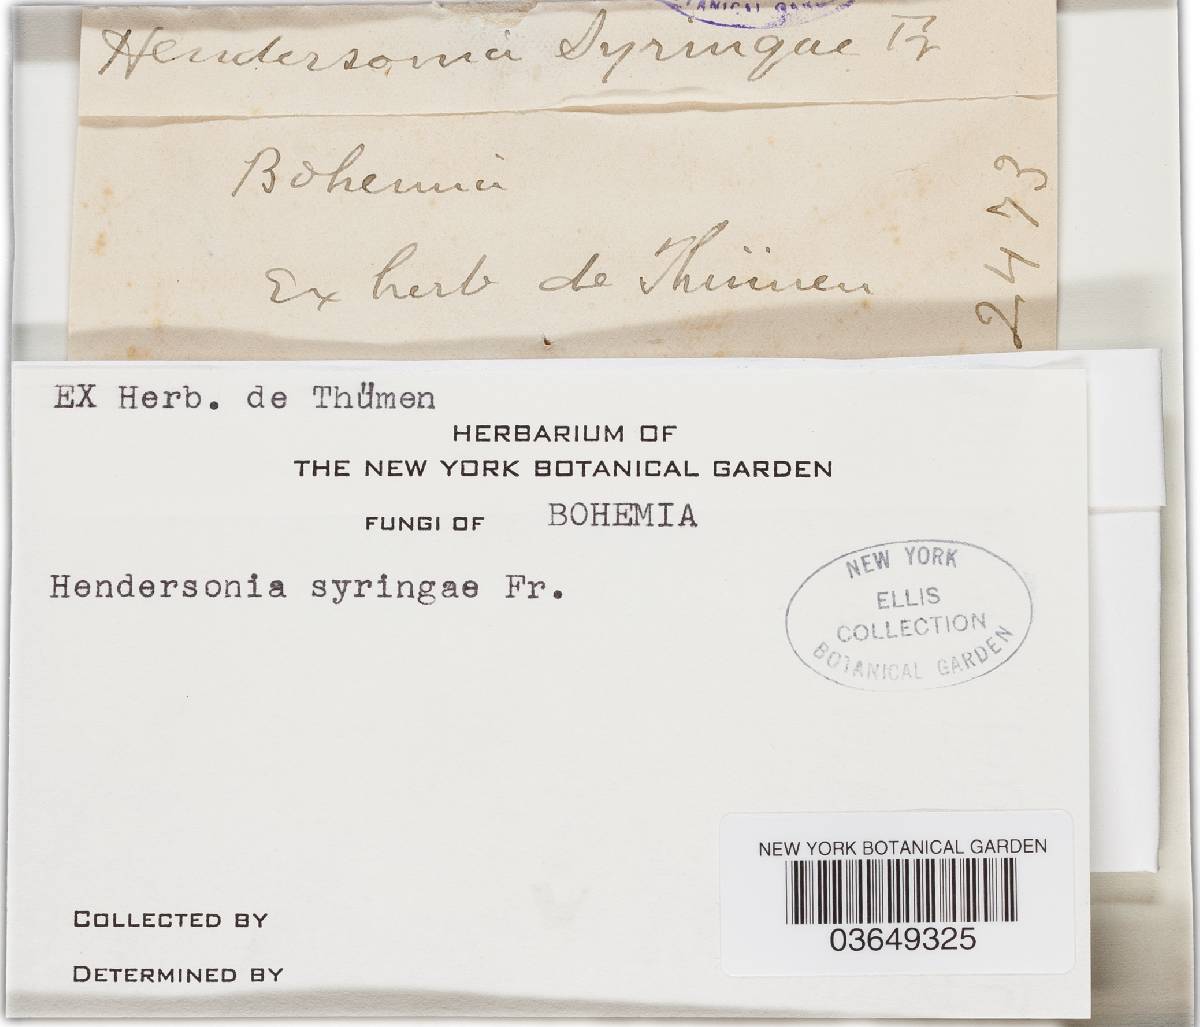 TANICAL GARD
Hendersonia Syringae Fr
Bohemia
Ex herb de Thümen
2473
EX Herb. de Thümen
HERBARIUM OF
THE NEW YORK BOTANICAL GARDEN
FUNGI OF BOHEMIA
Hendersonia syringae Fr.
NEW YORK
ELLIS
COLLECTION
BOTANICAL GARDEN
NEW YORK BOTANICAL GARDEN
03649325
COLLECTED BY
DETERMINED BY